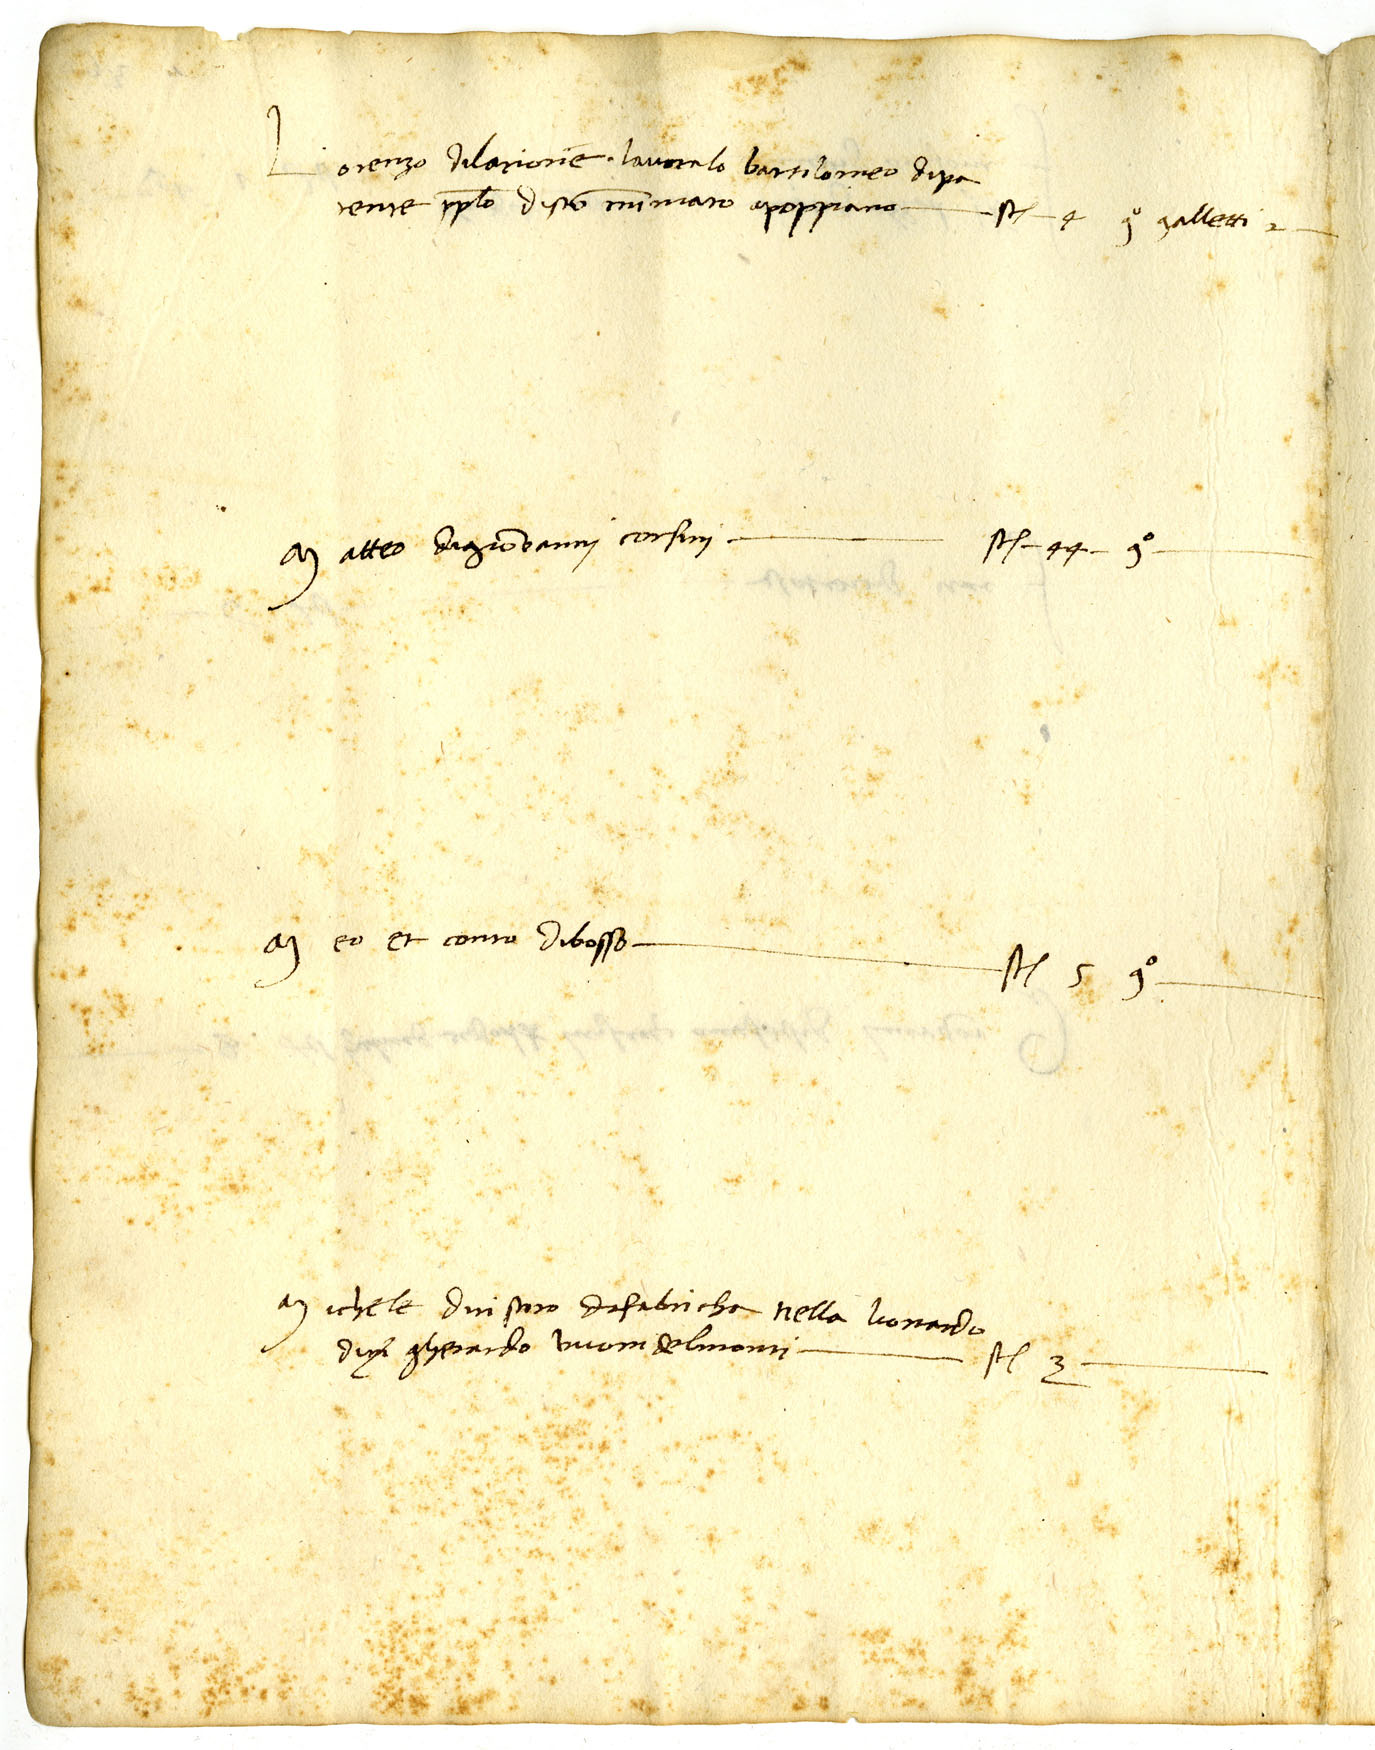 Lorenzo dilarione lavoralo bartolomeo dipa
rente pplo disto miniato apoppiano st 4 go galletti 2
Matteo digiovanni corsini st 44 go
Meo et conto dibosso st 5 go
Michele dristoro dafabricha nella lionardo
di gherardo buondelmonti st 3